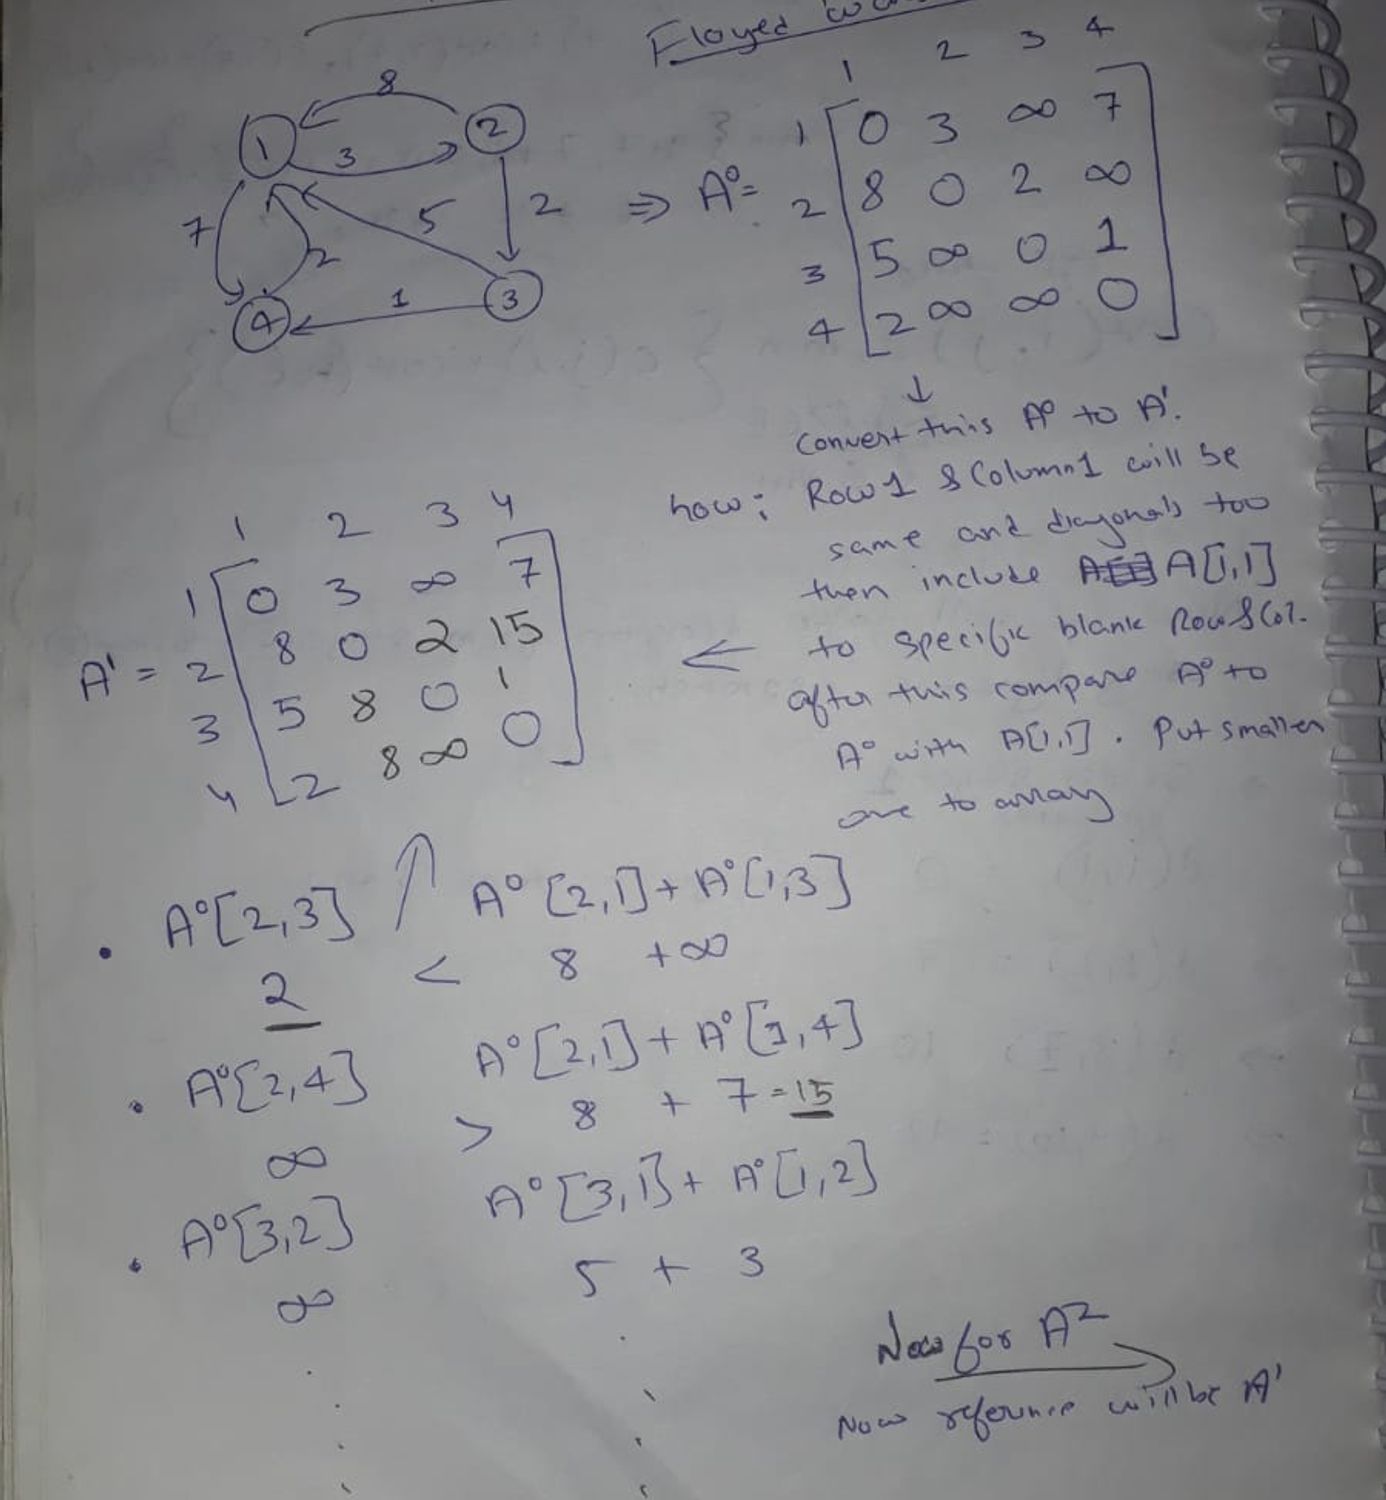 Floyed
8
1 2
3
7 5 2
2
1
4 3
1 2 3 4
1 0 3 ∞ 7
⇒ A⁰= 2 8 0 2 ∞
3 5 ∞ 0 1
4 2 ∞ ∞ 0
↓
Convert this A⁰ to A¹.
how: Row 1 & Column1 will be
same and diagonals too
then include A[1,1]
← to specific blank Row & Col.
after this compare A⁰ to
A⁰ with A[1,1]. Put smaller
one to array
1 2 3 4
1 0 3 ∞ 7
A¹ = 2 8 0 2 15
3 5 8 0 1
4 2 8 ∞ 0
• A⁰[2,3] A⁰[2,1]+A⁰[1,3]
2 < 8 +∞
• A⁰[2,4] A⁰[2,1]+A⁰[1,4]
∞ > 8 + 7=15
• A⁰[3,2] A⁰[3,1]+A⁰[1,2]
∞ 5 + 3
Now for A²
Now reference will be A¹